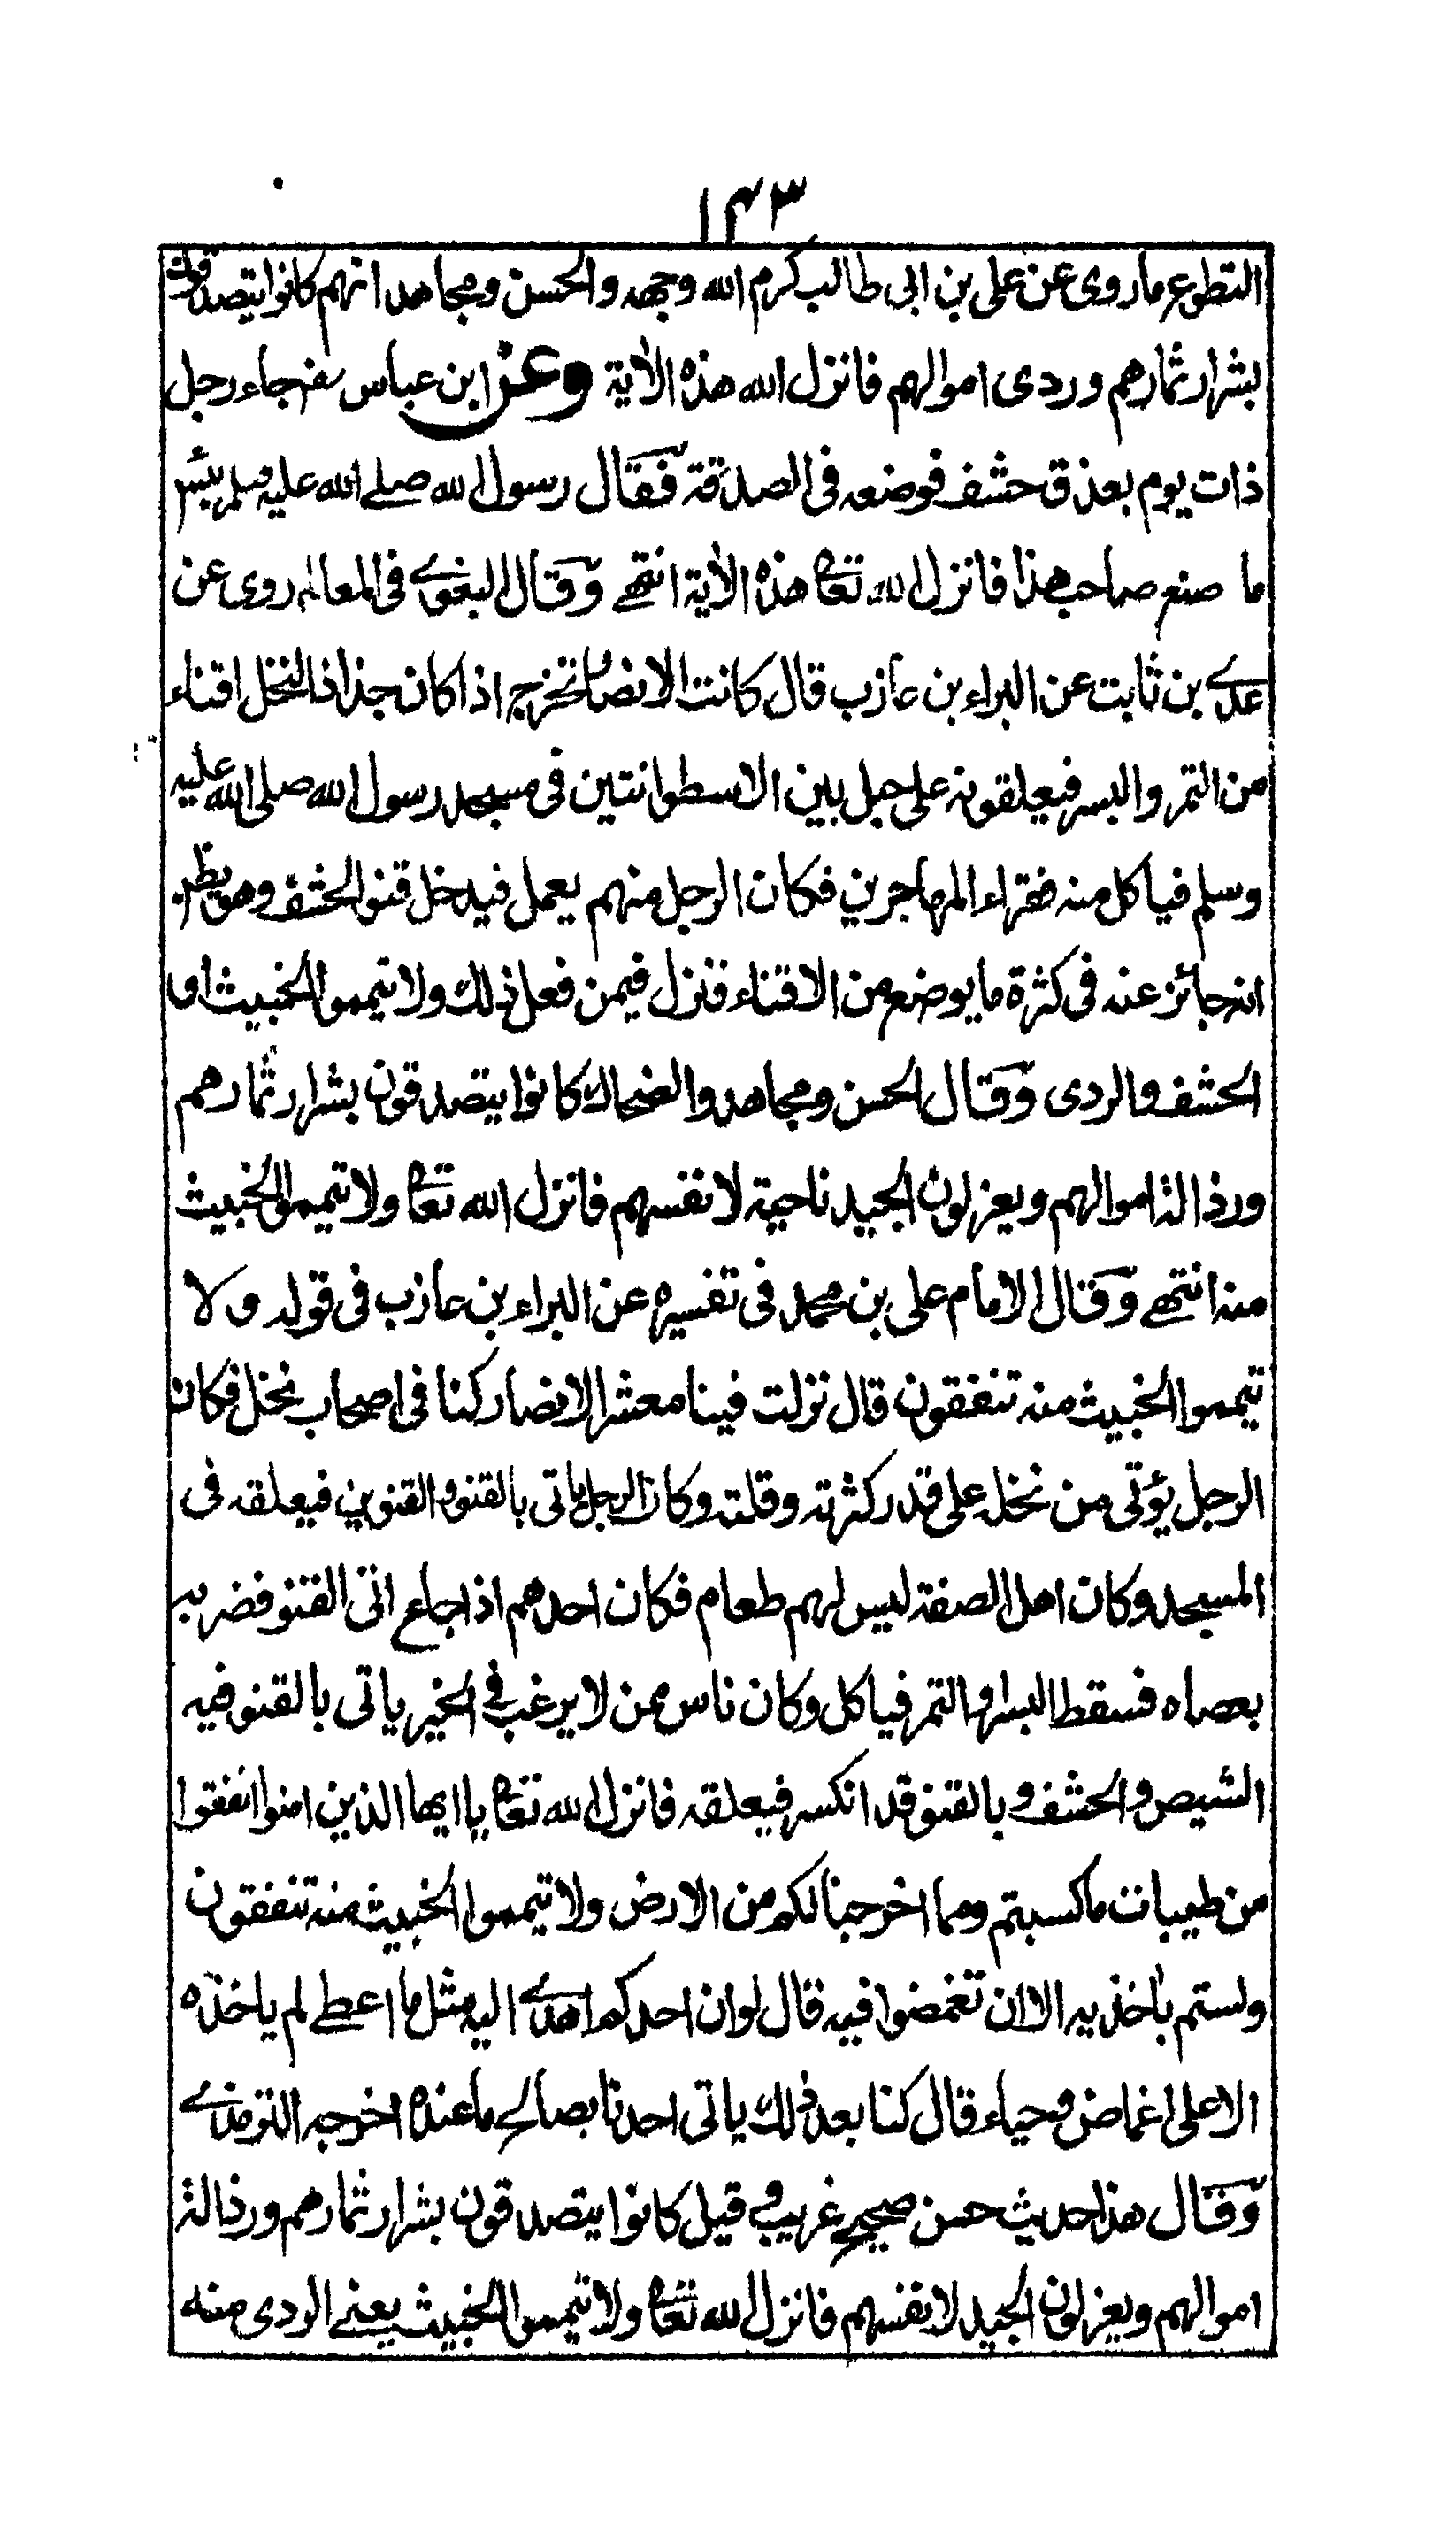 ١٤٣
التطوع ما روى عن على بن ابى طالب كرم الله وجهه والحسن ومجاهد انهم كانوا يتصدقون
بشرار ثمارهم وردى اموالهم فانزل الله هذه الاٰية وعن ابن عباس رضـ جاء رجل
ذات يوم بعذق حشف فوضعه فى الصدقة فقال رسول الله صلے الله عليه وسلم بئس
ما صنع صاحب هذا فانزل الله تعالٰى هذه الاٰية انتهے وقال البغوے فى المعالم روى عن
عدے بن ثابت عن البراء بن عازب قال كانت الانصار تخرج اذا كان جذاذ النخل اقناء
من التمر والبسر فيعلقونه على حبل بين الاسطوانتين فى مسجد رسول الله صلى الله عليه
وسلم فياكل منه فقراء المهاجرين فكان الرجل منهم يعمل فيدخل قنو الحشف وهو يظن
انه جائز عنه فى كثرة ما يوضع من الاقناء فنزل فيمن فعل ذلك ولا تيمموا الخبيث اى
الحشف والردى وقال الحسن ومجاهد والضحاك كانوا يتصدقون بشرار ثمارهم
ورذالة اموالهم ويعزلون الجيد ناحية لانفسهم فانزل الله تعالٰى ولا تيمموا الخبيث
منه انتهے وقال الامام على بن محمد فى تفسيره عن البراء بن عازب فى قوله ولا
تيمموا الخبيث منه تنفقون قال نزلت فينا معشر الانصار كنا فى اصحاب نخل فكان
الرجل يؤتى من نخله على قدر كثرته وقلته وكان الرجل ياتى بالقنو والقنوين فيعلقه فى
المسجد وكان اهل الصفة ليس لهم طعام فكان احدهم اذا جاع اتى القنو فضربه
بعصاه فسقط البسر والتمر فياكل وكان ناس ممن لا يرغب فى الخير ياتى بالقنو فيه
الشيص والحشف وبالقنو قد انكسر فيعلقه فانزل الله تعالٰى يا ايها الذين امنوا انفقوا
من طيبات ما كسبتم ومما اخرجنا لكم من الارض ولا تيمموا الخبيث منه تنفقون
ولستم باٰخذيه الا ان تغمضوا فيه قال لو ان احدكم اهدے اليه مثل ما اعطے لم ياخذه
الا على اغماض وحياء قال كنا بعد ذلك ياتى احدنا بصالح ما عنده اخرجه الترمذے
وقال هذا حديث حسن صحيح غريب وقيل كانوا يتصدقون بشرار ثمارهم ورذالة
اموالهم ويعزلون الجيد لانفسهم فانزل الله تعالٰى ولا تيمموا الخبيث يعنے الردى منه